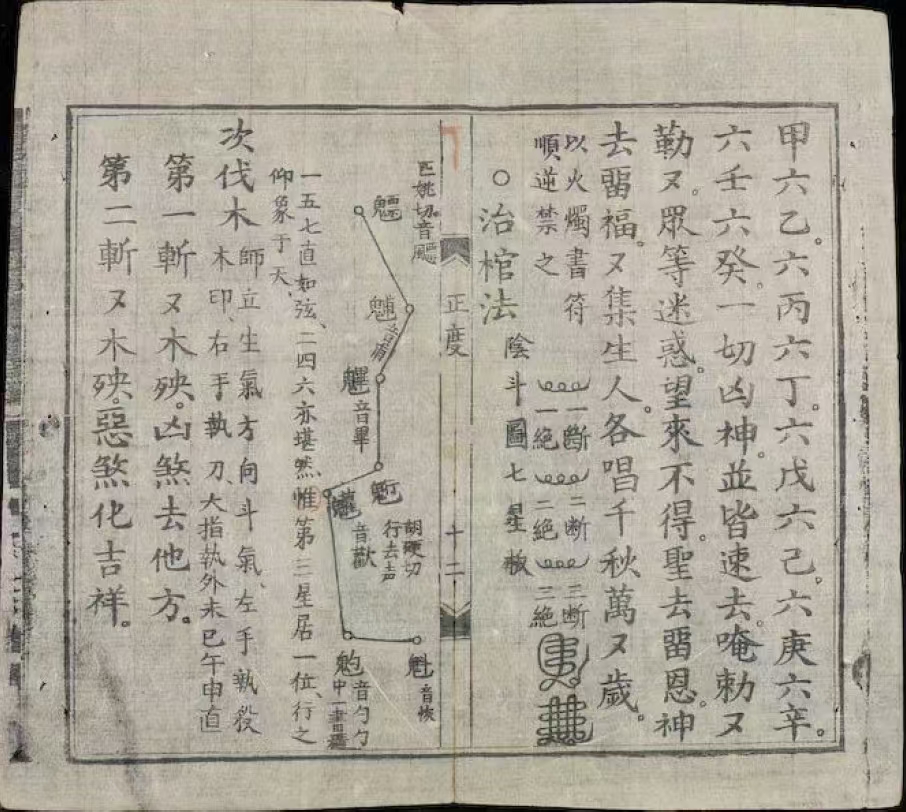 甲六乙。六丙六丁。六戊六己。六庚六辛。
六壬六癸。一切凶神。並皆速去。唵勅又
勒又。眾等迷惑。望來不得。聖去畱恩。神
去畱福。又集生人。各唱千秋萬又歲。
以火燭書符
順逆禁之
一斷 二斷 三斷
一絕 二絕 三絕
○治棺法
陰斗圖七星檄
正度
十二
匹姚切。音飈
魒
音甫
魓
音畢
胡硬切
行去声
音歡
音勺勺
中一畫
魁
音恢
一五七直如弦、二四六亦堪然、惟第三星居一位、行之
仰象于天、
次伐木
師立生氣方向斗氣、左手執殳
木印、右手執刀、大指執外未巳午申直
第一斬又木殃。凶煞去他方。
第二斬又木殃。惡煞化吉祥。